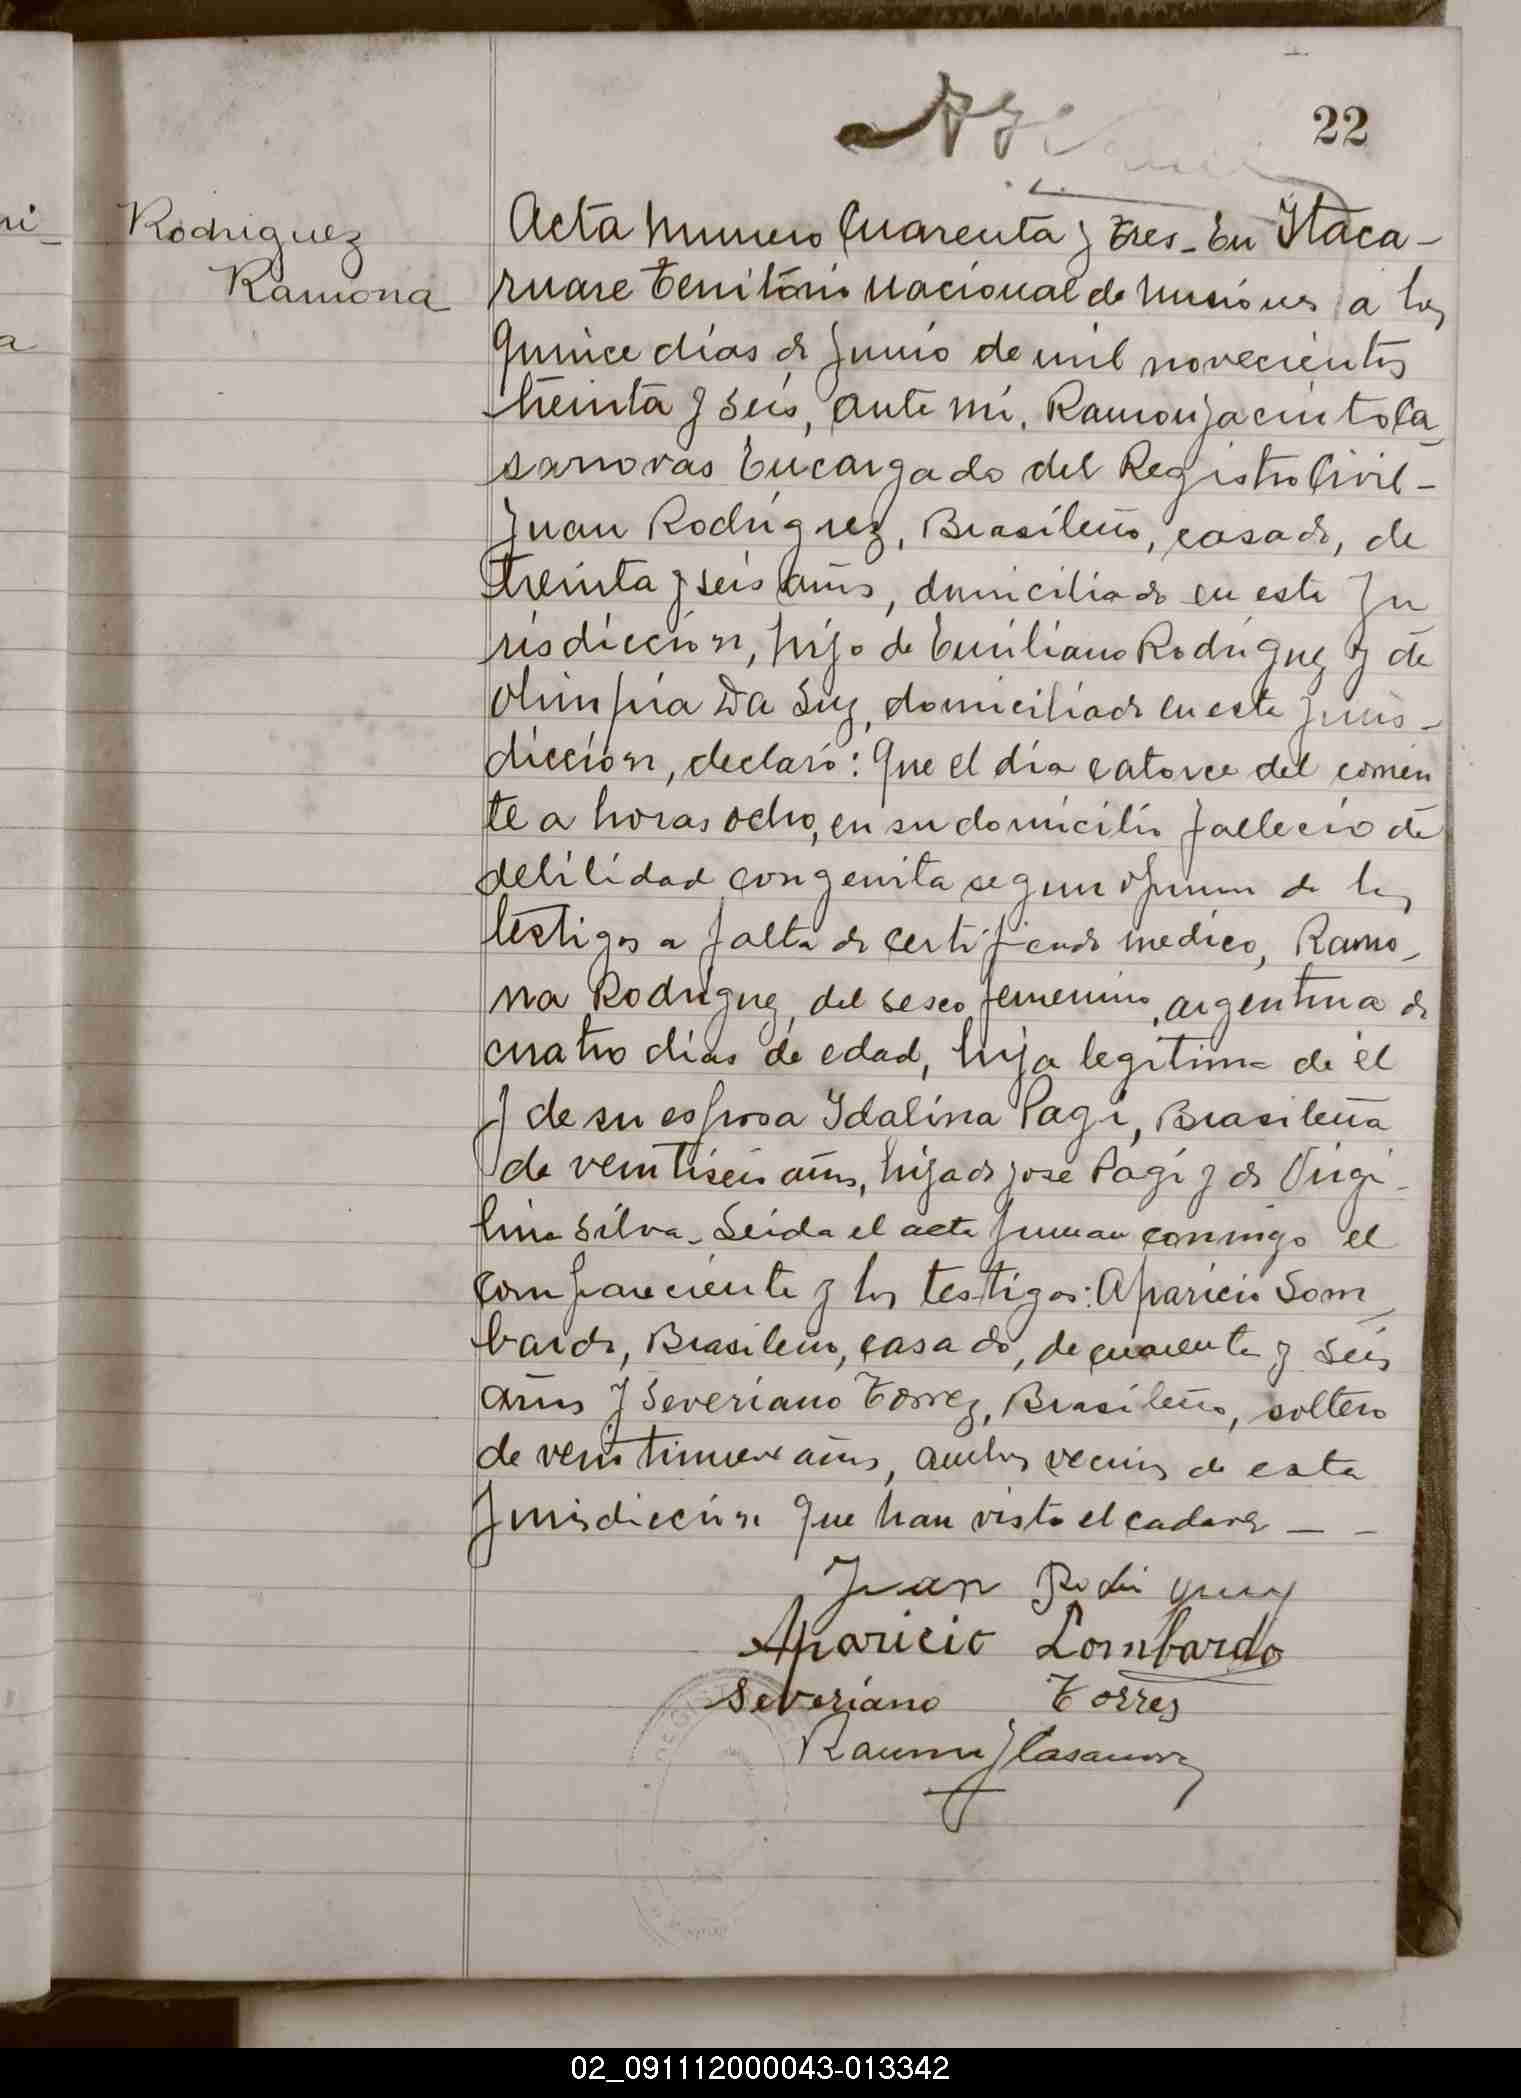 22
Rodriguez
Ramona
Acta numero Cuarenta y tres - En Itaca-
ruare territorio nacional de Misiones a los
quince dias de junio de mil novecientos
treinta y seis, ante mi, Ramon Jacinto Ca
sanovas Encargado del Registro Civil -
Juan Rodriguez, Brasileño, casado, de
treinta y seis años, domiciliado en esta Ju
risdiccion, hijo de Emiliano Rodriguez y de
Olimpia Da Luz, domiciliado en esta juris-
diccion, declaró: Que el dia catorce del corrien
te a horas ocho, en su domicilio fallecio de
debilidad congenita segun opinion de los
testigos a falta de certificado medico, Ramo-
na Rodriguez, del sexo femenino, argentina de
cuatro dias de edad, hija legitima de el
y de su esposa Idalina Pagi, Brasileña
de ventiseis años, hija de Jose Pagi y de Virgi-
lina Silva - Leida el acta firman conmigo el
compareciente y los testigos: Aparicio Lom
bardo, Brasileño, casado, de cuarenta y seis
años y Severiano Torrez, Brasileño, soltero
de ventinueve años, ambos vecinos de esta
Jurisdiccion que han visto el cadaver - -
Juan Rodriguez
Aparicio Lombardo
Severiano Torres
Ramon J Casanovas
02_091112000043-013342